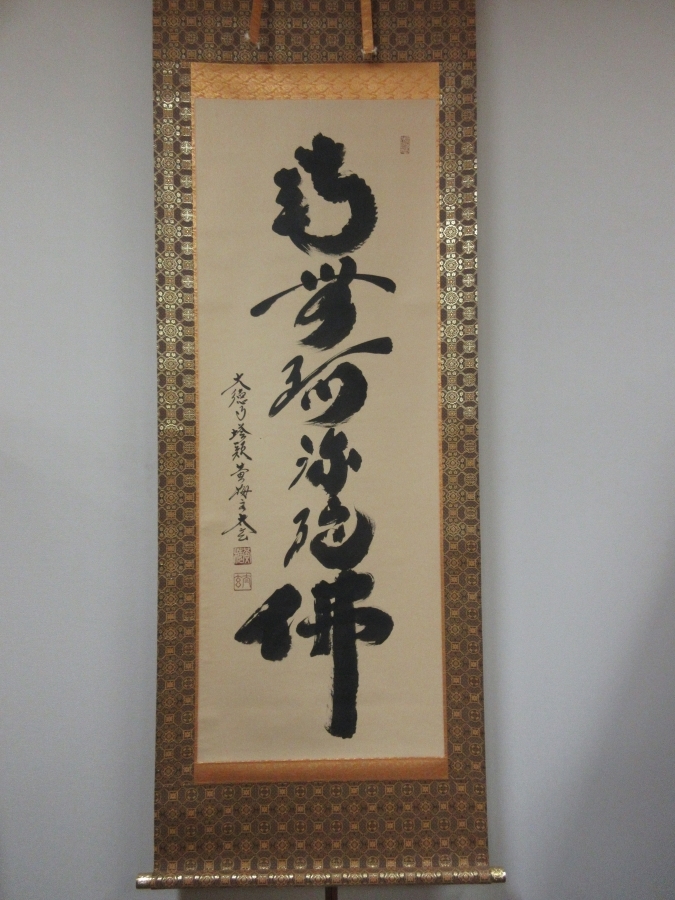 南無阿弥陀佛
大徳寺塔頭黄梅主太玄